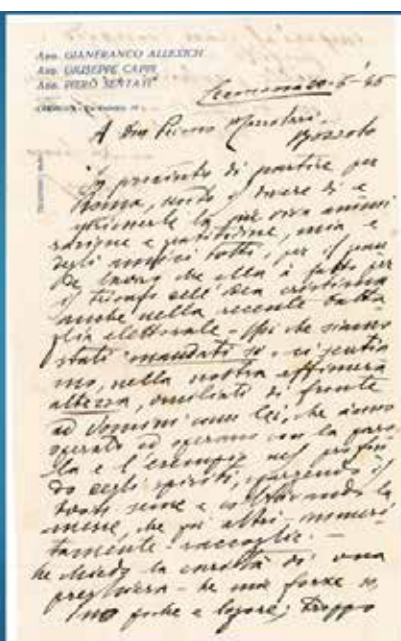 Avv. GIANFRANCO ALLEXICH
Avv. GIUSEPPE CAPPI
Avv. PIERO SENTATI
CREMONA
Cremona 20-6-46
A Don Primo Mazzolari.
Bozzolo
In procinto di partire per
Roma, sento il dovere di e
sprimerle la più viva ammi
razione e gratitudine, mia e
degli amici tutti, per il gran
de lavoro che ella à fatto per
il trionfo dell'idea cristiana
anche nella recente batta
glia elettorale - Noi che siamo
stati mandati su, ci sentia
mo, nella nostra effimera
altezza, umiliati di fronte
ad uomini come lei, che ànno
operato ed operano con la paro
la e l'esempio nel profon
do degli spiriti, spargendo il
buon seme e coltivando la
messe, che poi altri, immeri
tamente raccoglie. -
Le chiedo la carità di una
preghiera - Le mie forze so
no poche e logore; troppo